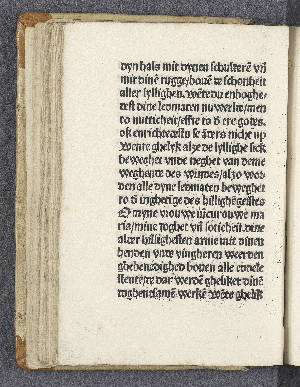 dyn hals mit dynen schulderē vñ
mit dinē rugge/bouē de schonheit
aller lyllighen. wēte du en boghe-
dest dine ledmaten nu werlde/men
to nutticheit/effte to d ere godes.
ok enrichtedestu se ād̕ers niche up
Wente ghelyk alze de lyllighe sick
beweghet vnde neghet van deme
weghende des wyndes/alzo wor-
den alle dyne ledmaten beweghet
to d inghetinge des hillighē geistes
O myne vrouwe iūcvrouwe ma
ria/mine doghet vñ soticheit. dine
alder hillighesten arme mit dinen
henden vnde vingheren weerden
ghebenedighed bouen alle eddele
stente/ dar werdē gheliket dinē
doghentsamē werkē Wēte ghelik